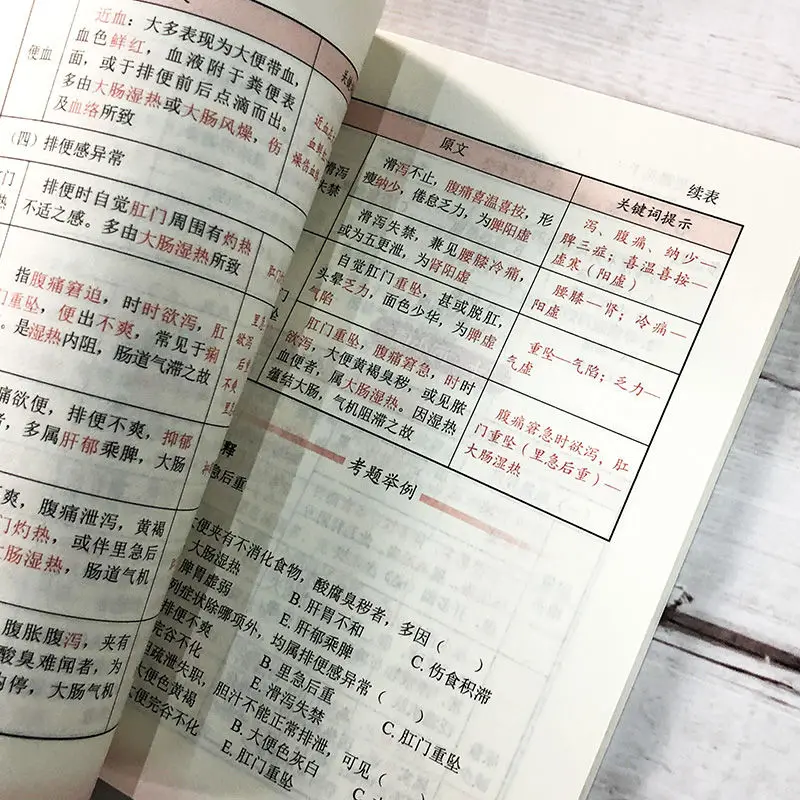 近血：大多表现为大便带血，
血色鲜红，血液附于粪便表
便血
面，或于排便前后点滴而出。
多由大肠湿热或大肠风燥，伤
及血络所致
（四）排便感异常
排便时自觉肛门周围有灼热
不适之感。多由大肠湿热所致
指腹痛窘迫，时时欲泻，肛
门重坠，便出不爽，常见于痢
是湿热内阻，肠道气滞之故
痛欲便，排便不爽，抑郁
者，多属肝郁乘脾，大肠
爽，腹痛泄泻，黄褐
门灼热，或伴里急后
肠湿热，肠道气机
腹胀腹泻，夹有
酸臭难闻者，为
内停，大肠气机
续表
原文
关键词提示
滑泻
失禁
滑泻不止，腹痛喜温喜按，形
瘦纳少，倦怠乏力，为脾阳虚
泻、腹痛、纳少—
脾三症；喜温喜按—
虚寒（阳虚）
滑泻失禁，兼见腰膝冷痛，
或为五更泄，为肾阳虚
腰膝—肾；冷痛—
阳虚
自觉肛门重坠，甚或脱肛，
头晕乏力，面色少华，为脾虚
气陷
重坠—气陷；乏力—
气虚
肛门重坠，腹痛窘急，时时
欲泻，大便黄褐臭秽，或见脓
血便者，属大肠湿热。因湿热
蕴结大肠，气机阻滞之故
腹痛窘急时欲泻，肛
门重坠（里急后重）—
大肠湿热
释
急后重
考题举例
大便夹有不消化食物，酸腐臭秽者，多因（ ）
大肠湿热
B. 肝胃不和
C. 伤食积滞
脾胃虚弱
E. 肝郁乘脾
列症状除哪项外，均属排便感异常（ ）
排便不爽
B. 里急后重
C. 肛门重坠
完谷不化
E. 滑泻失禁
胆疏泄失职，胆汁不能正常排泄，可见（ ）
大便色黄褐
B. 大便色灰白
大便完谷不化
E. 肛门重坠